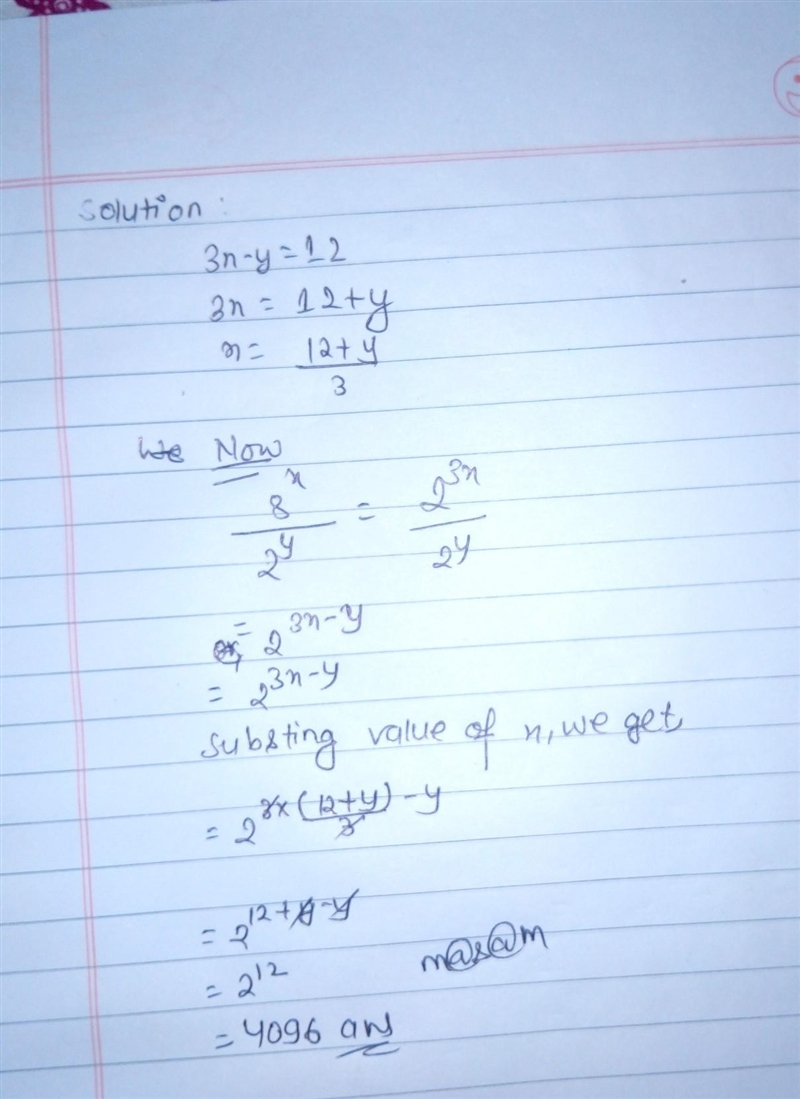 Solution :
3x-y=12
3x = 12+y
x = 12+y
3
We Now
8^x / 2^y = 2^3x / 2^y
or, = 2^3x-y
= 2^3x-y
Substing value of x, we get,
= 2^3x(12+y)/3 -y
= 2^12+y-y
= 2^12 m@s@m
= 4096 ans